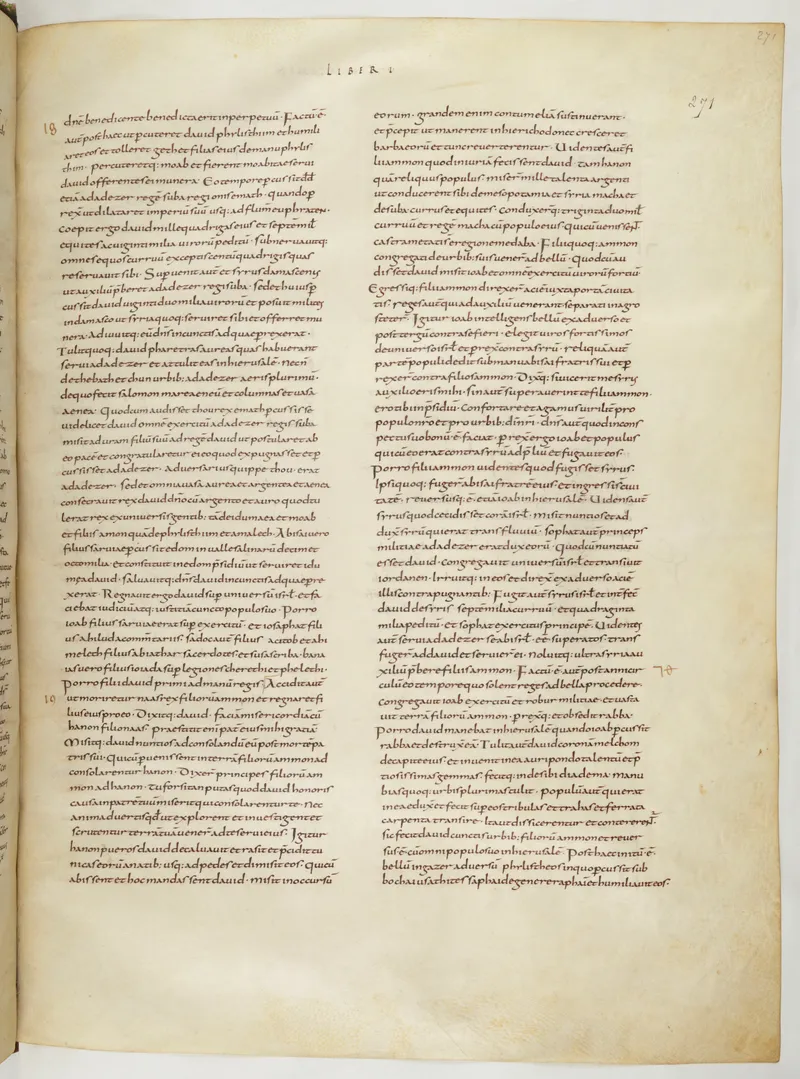 271
LIBER I
271
18
dnē benedicente benedicta erit inperpetuū · Factū ē·
autē post haec ut percuteret dauid phylisthim et humili
aret eos et tolleret geth et filias eius de manu phylis
thim · percuteretq; moab et fierent moabitae serui
dauid offerentes ei munera · Eo tempore percussit dd
etiā adadezer regē suba regionis emath · quando p
rexit ut dilataret imperiū suū usq; ad flumē euphraten·
Coepit ergo dauid mille quadrigas eius et septē mil
equites ac uiginti milia uirorū peditū · subneruauitq;
omnes equos curruū exceptis centū quadrigis quas
reseruauit sibi · Superuenit autē et syrus damascenus
ut auxiliū pberet adadezer regi suba · sed et huius p
cussit dauid uiginti duo milia uirorū et posuit milites
indamasco ut syria quoq; seruiret sibi et offerret mu
nera · Adiuuitq; eū dns incunctis ad quae prexerat ·
Tulit quoq; dauid pharetras aureas quas habuerant
serui adadezer et attulit eas inhierusalē · necn
de thebath et chun urbib; adadezer aeris plurimū ·
de quo fecit salomon mare aeneū et columnas et uasa
aenea · Quod cum audisset thou rex emath pcussisse
uidelicet dauid omnē exercitū adadezer regis suba
misit aduram filiū suū ad regē dauid ut postularet ab
eo pacē et congratularetur ei eo quod expugnasset et p
cussisset adadezer · Aduersarius quippe thou erat
adadezer · sed et omnia uasa aurea et argentea et aenea
consecrauit rex dauid dnō cū argento et auro quod tu
lerat rex ex uniuersis gentib; tā de idumaea et moab
et filiis amon quā de phylisthim et amalech · Abisai uero
filius saruiae pcussit edom in ualle salinarū decim et
octo milia · et constituit in edom psidiū ut seruiret idu
mea dauid · saluauitq; dns dauid incunctis ad quae pre
xerat · Regnauit ergo dauid sup uniuersū isrl · et fa
ciebat iudiciū atq; iustitiā cuncto populo suo · Porro
ioab filius saruiae erat sup exercitū · et iosaphat fili
us ahilud a comm̄tariis · sadoc autē filius acitob et ahi
melech filius abiathar sacerdotes · et susa scriba · bana
ias uero filius ioiada sup legiones cherethi et phelethi ·
Porro filii dauid primi ad manū regis · Accidit autē
19
ut moriretur naas rex filiorū ammon et regnaret fi
lius eius pro eo · Dixitq; dauid · faciā misericordiā cū
hanon filio naas · praestitit eni pater eius mihi gratiā ·
Misitq; dauid nuntios ad consolandū eū post mortē pa
tris sui · Qui cū puenissent interrā filiorū ammon ad
consolarentur hanon · Dixer principes filiorū am
mon ad hanon · tu forsitan putas quod dauid honoris
causa in patrē tuū miserit qui consolarentur te · nec
animaduertis qd ut explorent et inuestigent et
scrutentur terrā tuā uener ad te serui eius · Igitur
hanon pueros dauid decaluauit et rasit et pcidit tu
nicas eorū a natib; usq; ad pedes et dimisit eos · qui cū
abissent et hoc mandassent dauid · misit in occursū
eorum · grandem enim contumeliā sustinuerant ·
et pcepit ut manerent in hiericho donec cresceret
barba eorū et tunc reuerterentur · Uidentes autē fi
lii ammon quod iniuriā fecissent dauid · tam hanon
quā reliquus populus · miser mille talenta argenti
ut conducerent sibi de mesopotamia et syria macha et
de suba currus et equites · Conduxerq; triginta duo mil
curruū et regē macha cū populo eius · qui cū uenissent
castra metati s e regione medaba · Filii quoq; ammon
congregati de urbib; suis uener ad bellū · Quod cū au
disset dauid misit ioab et omnē exercitū uirorū fortiū ·
Egressiq; filii ammon direxer aciē iuxta portā ciuita
tis · reges autē qui ad auxiliū uenerant separati in agro
steter · Igitur ioab intellegens bellū ex aduerso et
post tergū contra se fieri · elegit uiros fortissimos
de uniuerso isrl · et prexit contra syrū · reliquā autē
partē populi dedit sub manu abisai fratris sui et p
rexer contra filios ammon · Dixitq; si uicerit me syrus
auxilio eris mihi · sin autē superauerint te filii ammon ·
ero tibi in psidiū · Confortare et agamus uiriliter pro
populo nro et pro urbib; di nri · dns autē quod in cons
pectu suo bonū ē faciat · prexit ergo ioab et populus
qui cū eo erat contra syrū ad pliū et fugauit eos ·
Porro filii ammon uidentes quod fugisset syrus ·
Ipsi quoq; fuger abisai fratrē eius · et ingressi s ciui
tatē · reuersusq; ē etiā ioab in hierusalē · Uidens autē
syrus quod cecidisset corā isrl · misit nuntios et ad
duxit syrū qui erat trans fluuiū · sophat autē princeps
militiae adadezer erat dux eorū · Quod cū nuntiatū
esset dauid · Congregauit uniuersū isrl · et transiuit
iordanen · Irruitq; in eos et direxit ex aduerso aciē
illis contra pugnantib; · Fugit autē syrus isrl · et interfec
dauid de syris septē milia curruū · et quadraginta
milia peditū · et sophat exercitus principē · Uidentes
autē serui adadezer se ab isrl · eē superatos · trans
fuger ad dauid et seruier ei · noluitq; ultra syria au
xiliū pbere filiis ammon · Factū ē autē post anni cir
20
culū eo tempore quo solent reges ad bella procedere ·
Congregauit ioab exercitū et robur militiae · et uasta
uit terrā filiorū ammon · prexitq; et obsedit rabba ·
Porro dauid manebat in hierusalē quando ioab pcussit
rabba et destruxit eā · Tulit autē dauid coronā melchom
de capite eius · et inuenit in ea auri pondo talentū et p
tiosissimas gemmas · fecitq; inde sibi diadema · manu
bias quoq; urbis plurimas tulit · populū autē qui erat
in ea eduxit et fecit sup eos tribulas et trahas et ferrata
carpenta transire · Ita ut dissicerentur et contererent ·
sic fecit dauid cunctis urbib; filiorū ammon et reuer
sus ē cum omni populo suo in hierusalē · Post haec initū ē·
bellū in gazer aduersū phylistheos in quo pcussit sub
bochai usathites saphai de genere raphaī et humiliauit eos ·